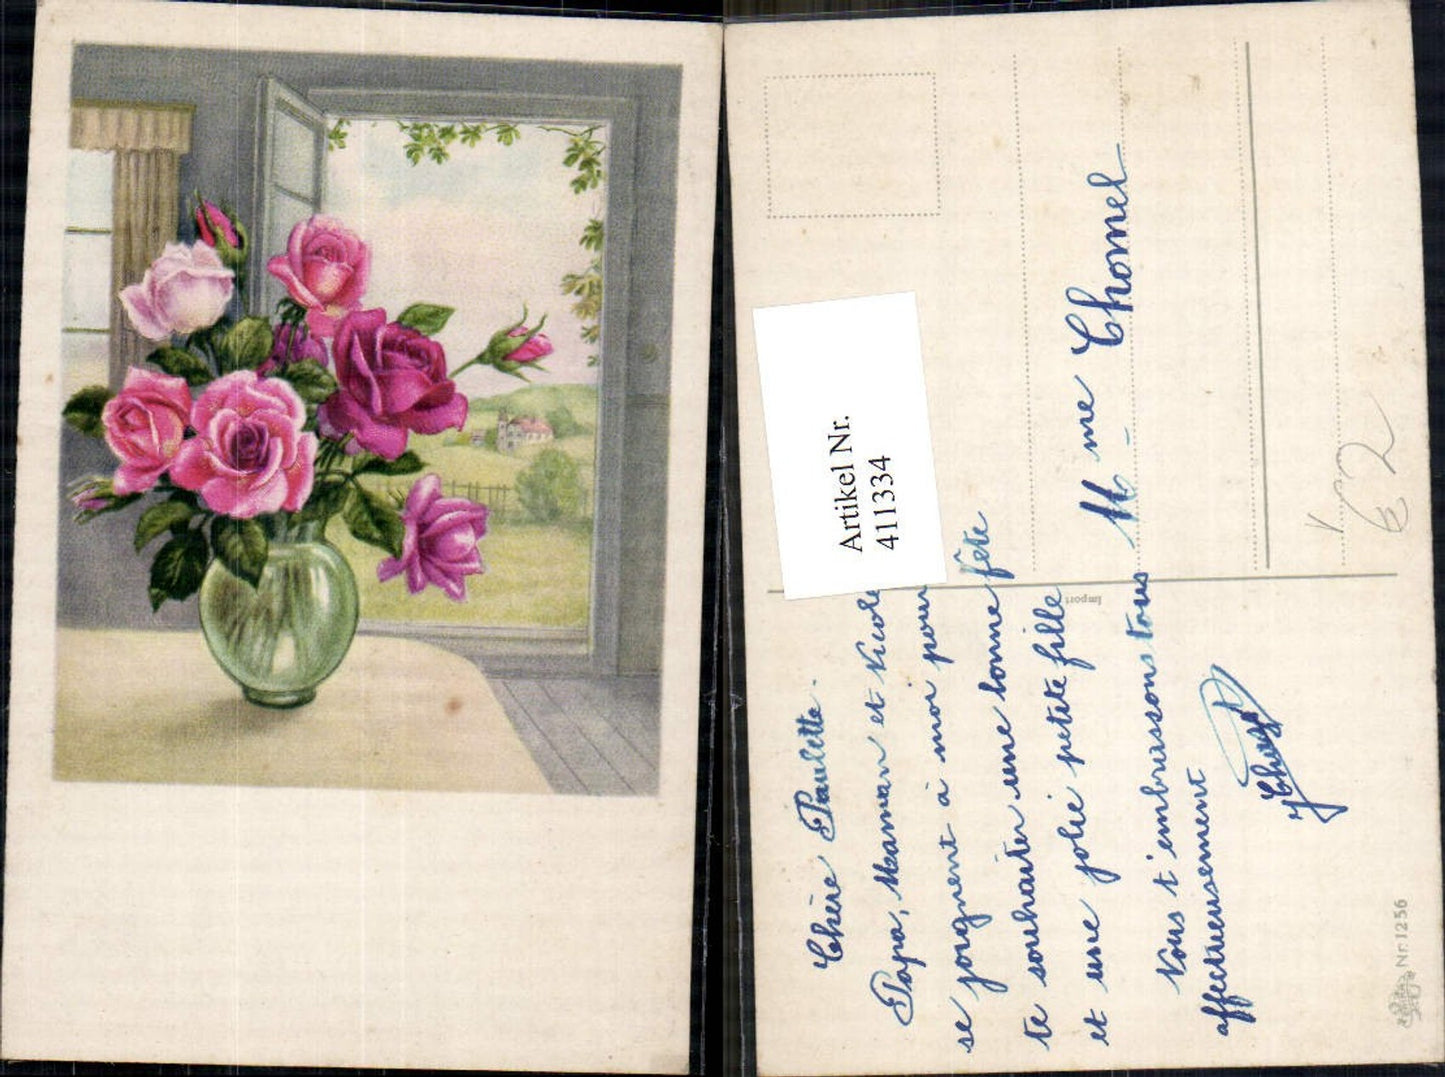 Chère Paulette.
Papa, Maman et Nicole
se joignent à moi pour
te souhaiter une bonne fête
et une jolie petite fille
Nous t'embrassons tous
affectueusement
M me Chomel
Artikel Nr.
411334
Import
Nr. 1256
62